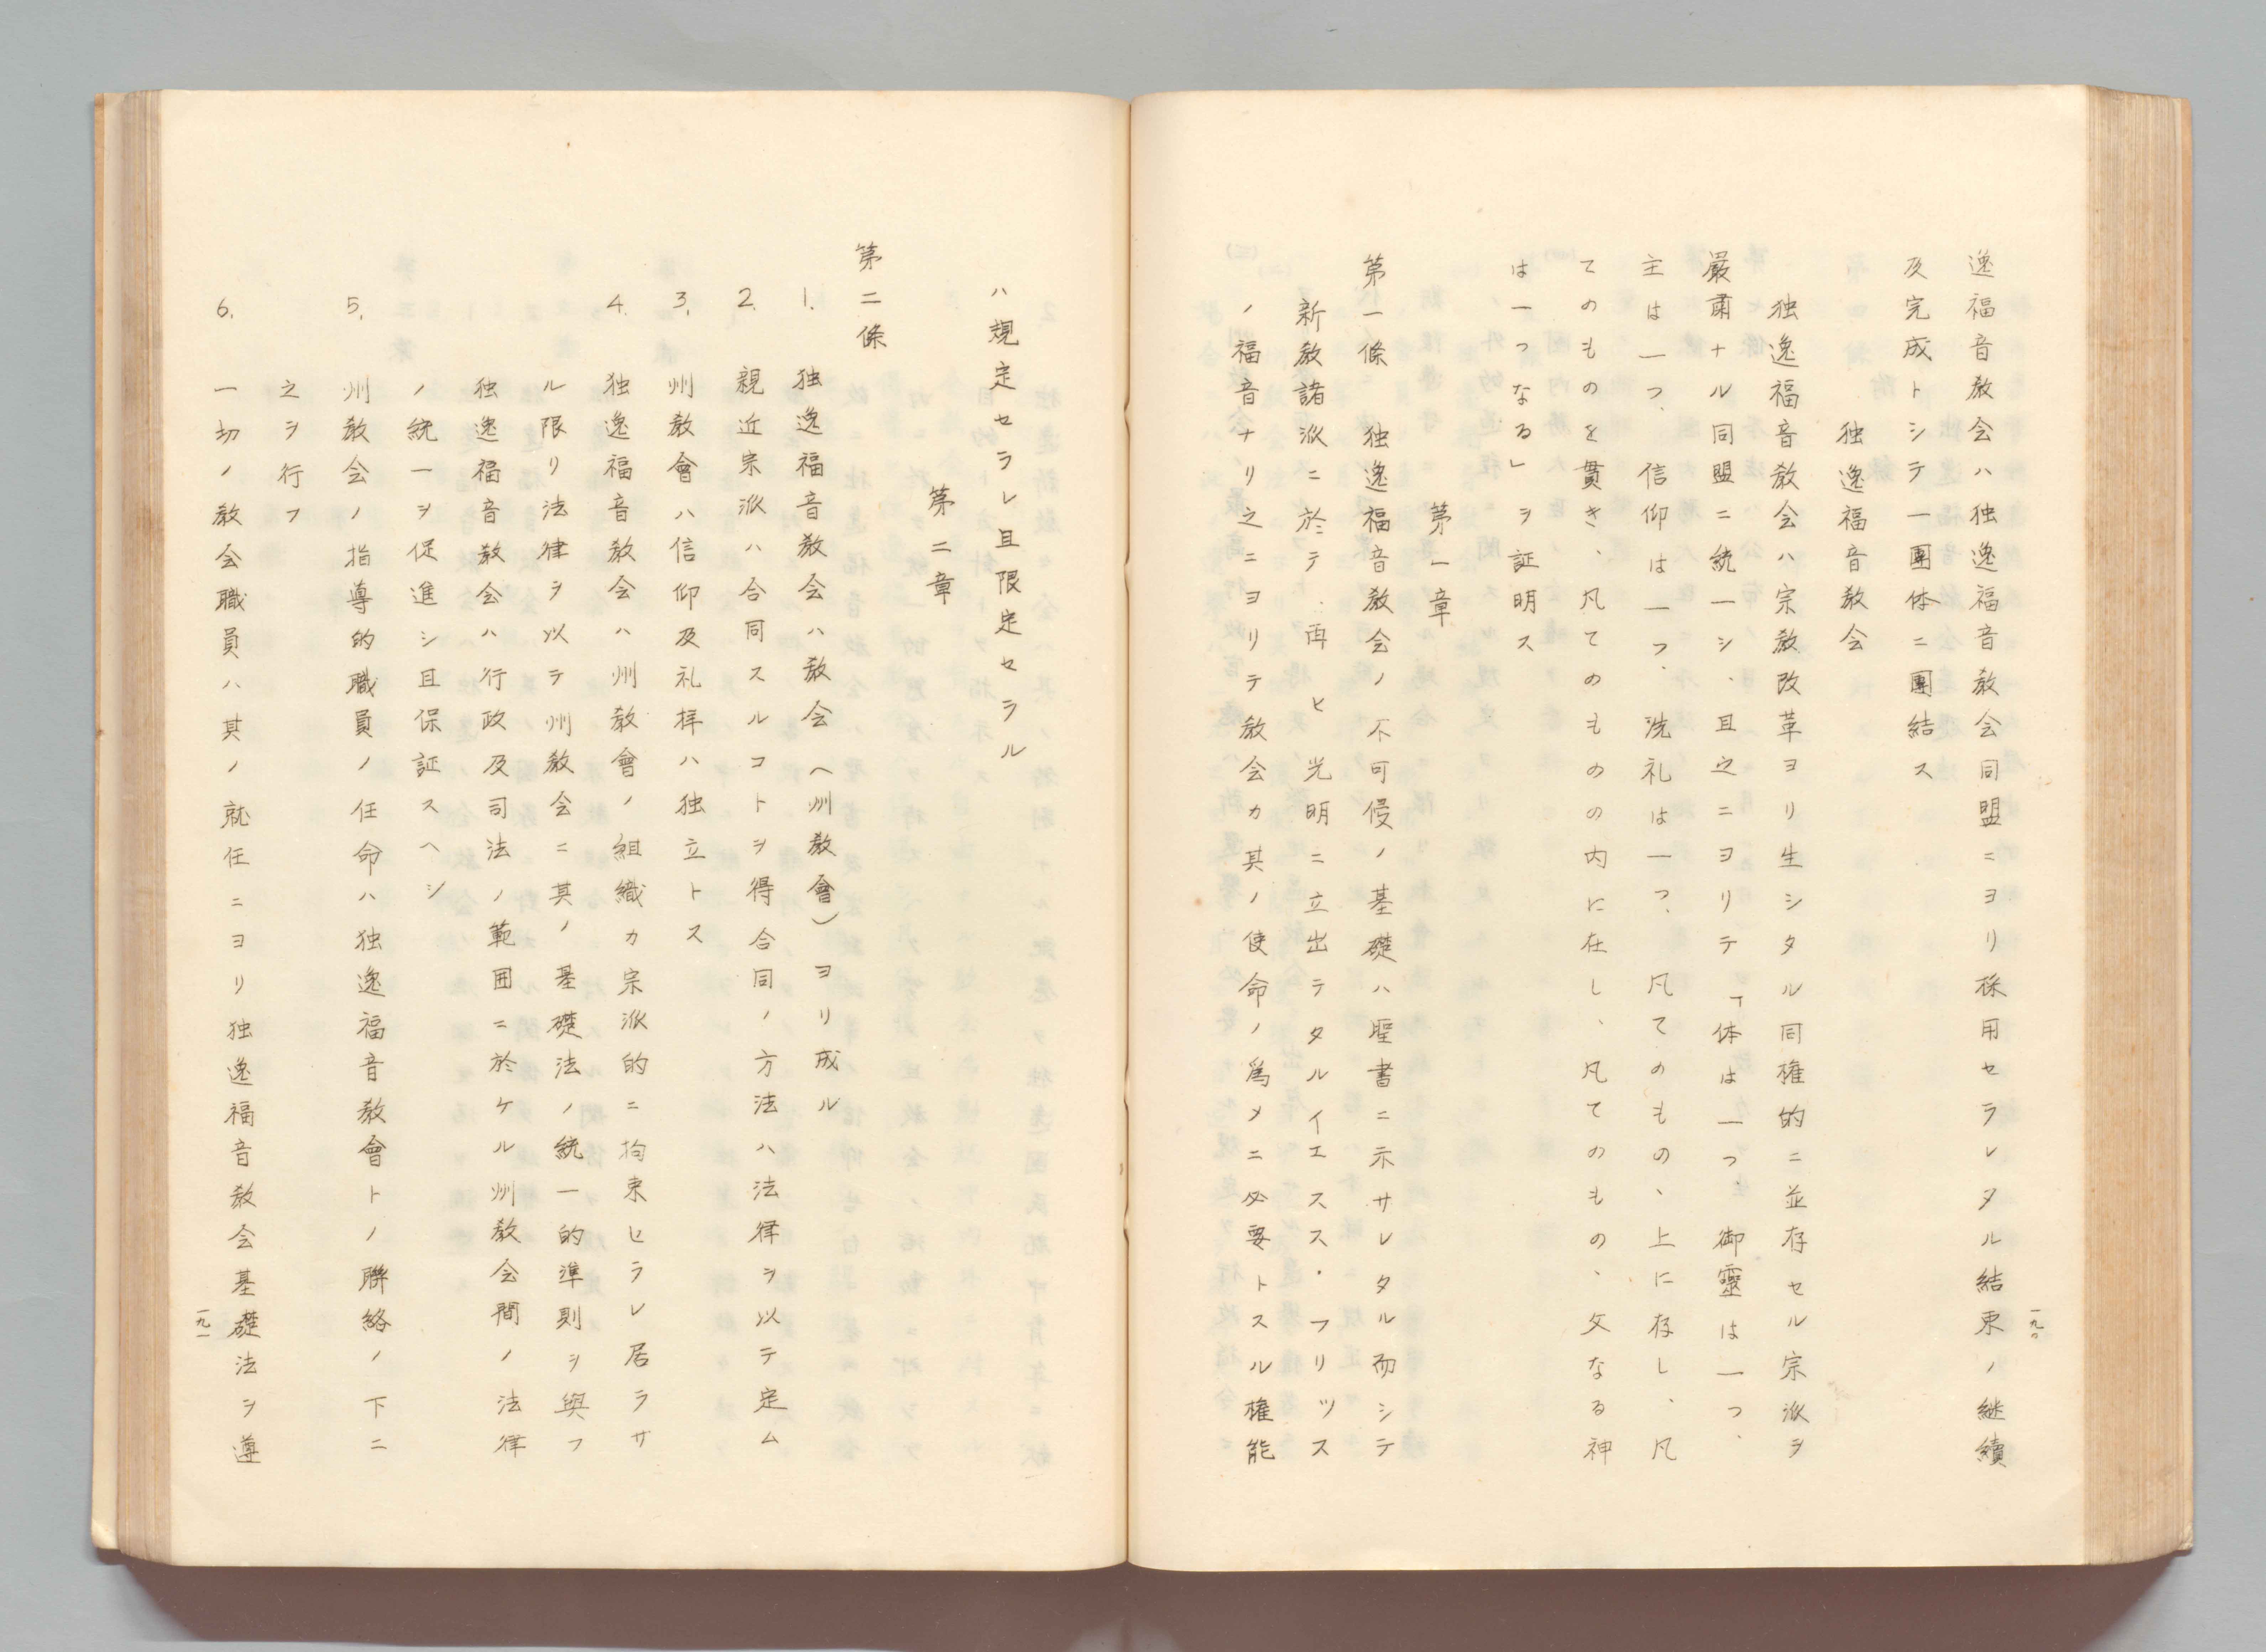 逸福音教会ハ独逸福音教会同盟ニヨリ採用セラレタル結束ノ継續
及完成トシテ一團体ニ團結ス
独逸福音教会
独逸福音教会ハ宗教改革ヨリ生シタル同権的ニ並存セル宗派ヲ
嚴肅ナル同盟ニ統一シ、且之ニヨリテ「体は一つ、御靈は一つ、
主は一つ、信仰は一つ、洗礼は一つ、凡てのもの、上に存し、凡
てのものを貫き、凡てのものの内に在し、凡てのもの、父なる神
は一つなる」ヲ証明ス
第一章
第一條 独逸福音教会ノ不可侵ノ基礎ハ聖書ニ示サレタル而シテ
新教諸派ニ於テ再ヒ光明ニ立出テタルイエスス・フリツス
ノ福音ナリ之ニヨリテ教会カ其ノ使命ノ為メニ必要トスル権能
一九〇
ハ規定セラレ且限定セラル
第二章
第二條
1. 独逸福音教会ハ教会(州教會)ヨリ成ル
2. 親近宗派ハ合同スルコトヲ得合同ノ方法ハ法律ヲ以テ定ム
3. 州教會ハ信仰及礼拝ハ独立トス
4. 独逸福音教会ハ州教會ノ組織カ宗派的ニ拘束セラレ居ラサ
ル限リ法律ヲ以テ州教会ニ其ノ基礎法ノ統一的準則ヲ與フ
独逸福音教会ハ行政及司法ノ範囲ニ於ケル州教会間ノ法律
ノ統一ヲ促進シ且保証スヘシ
5. 州教会ノ指導的職員ノ任命ハ独逸福音教會トノ聯絡ノ下ニ
之ヲ行フ
6. 一切ノ教会職員ハ其ノ就任ニヨリ独逸福音教会基礎法ヲ遵
一九一